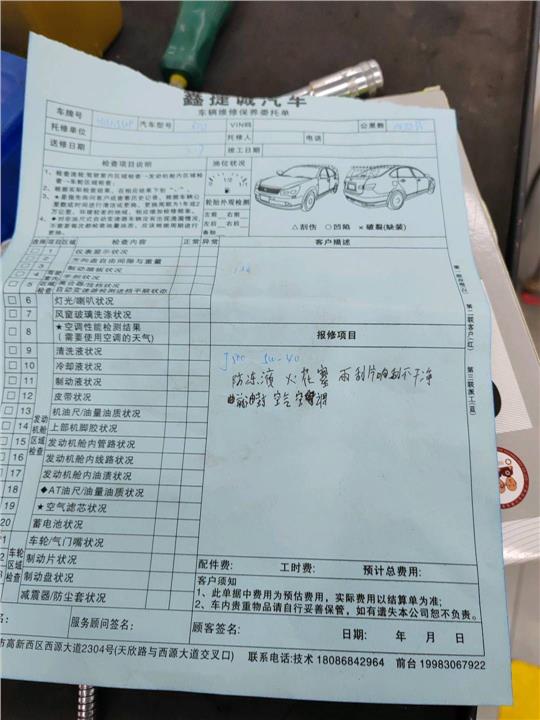 鑫捷诚汽车
车辆维修保养委托单
车牌号 汽车型号 VIN码 公里数
托修单位 托修人 电话
送修日期 竣工日期
检查项目说明 油位状况
轮胎外观检测
左前 右前
左后 右后
备胎
△刮伤 ○凹陷 ×破裂(缺装)
选择项目区域 检查内容 正常 异常 客户描述
1 仪表显示状况
2 方向盘自由间隙与重量
3 制动踏板状况
4 手刹状况
6 灯光/喇叭状况
7 风窗玻璃洗涤状况
8 ★空调性能检测结果
(需要使用空调的天气)
报修项目
9 清洗液状况
10 冷却液状况
11 制动液状况
12 皮带状况
13 机油尺/油量油质状况
14 上部机脚胶状况
15 发动机舱内管路状况
16 发动机舱内线路状况
17 发动机舱内油渍状况
18 ◆AT油尺/油量油质状况
19 ★空气滤芯状况
20 蓄电池状况
发动机舱区域检查
5W-40
防冻液 火花塞 雨刮片响刮不干净
1 车轮/气门嘴状况
2 制动片状况
制动盘状况
减震器/防尘套状况
车轮区域检查
配件费: 工时费: 预计总费用:
客户须知
1、此单据中费用为预估费用,实际费用以结算单为准;
2、车内贵重物品请自行妥善保管,如有遗失本公司恕不负责。
名: 服务顾问签名: 顾客签名: 日期: 年 月 日
市高新西区西源大道2304号(天欣路与西源大道交叉口) 联系电话:技术 18086842964 前台 19983067922
第二联客户(红)
第三联派工(蓝)